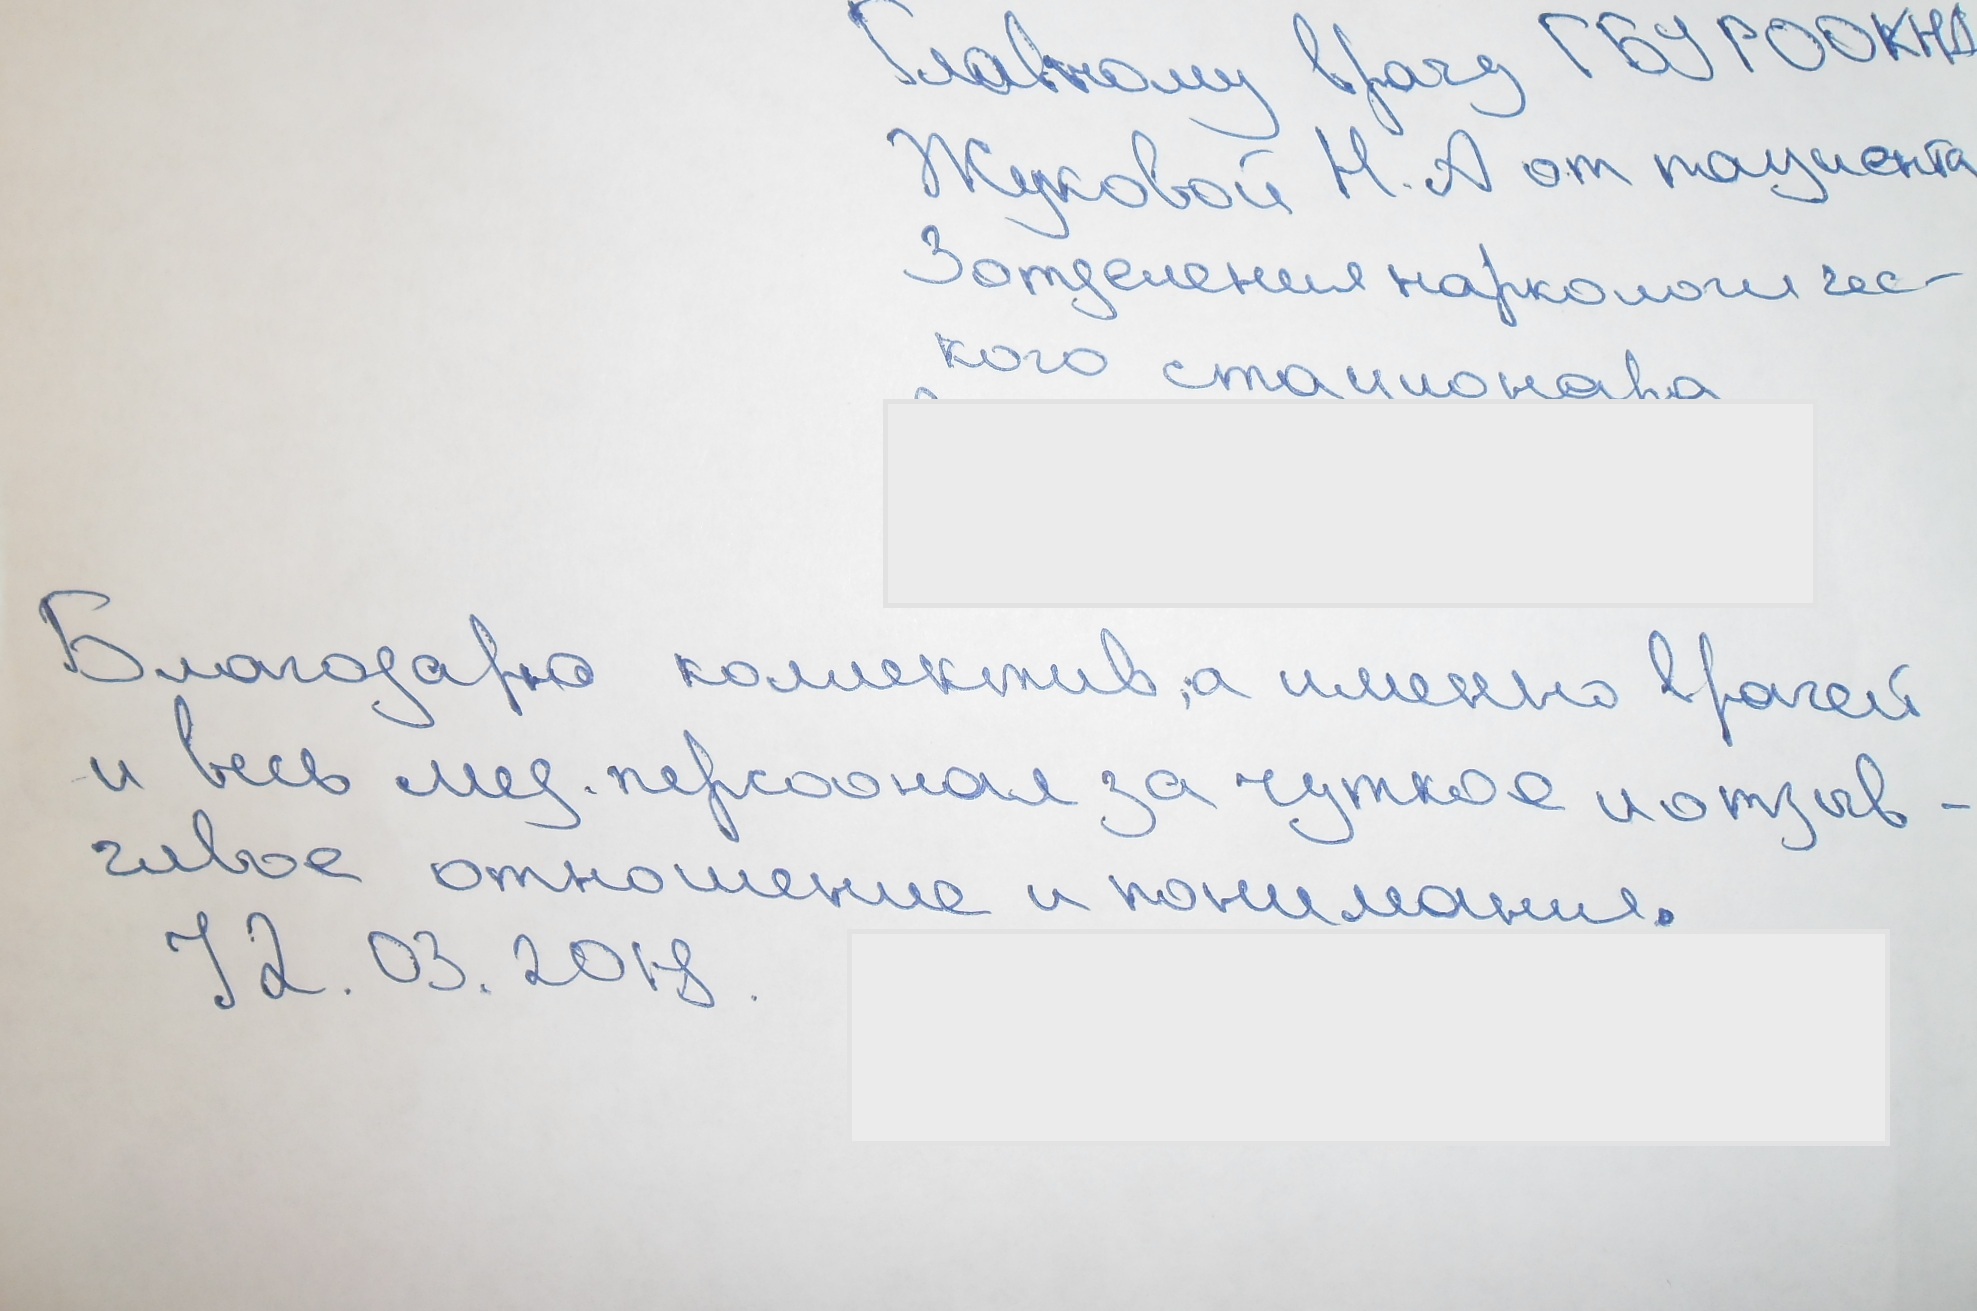 Главному врачу ГБУ РООКНД
Жуковой Н.А от пациента
3 отделения наркологичес-
кого стационара
Благодарю коллектив, а именно врачей
и весь мед. персоонал за чуткое и отзыв-
чивое отношение и понимания.
12.03.2018.